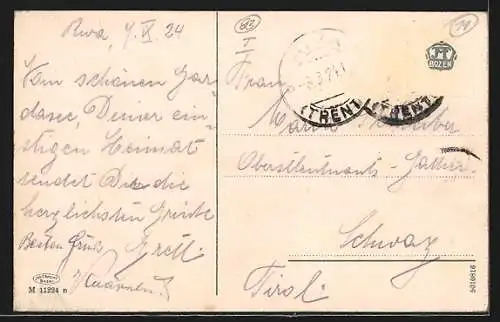 Riva, 7. IX. 24
Vom schönen Gar-
dasee, Deiner ein-
stigen Heimat
sendet Dir die
herzlichsten Grüße
Besten Gruß Gretl.
M 11224
Frau
Oberstleutnants-
Schwaz
Tirol.
(TRENT
(TRENT
BOZEN